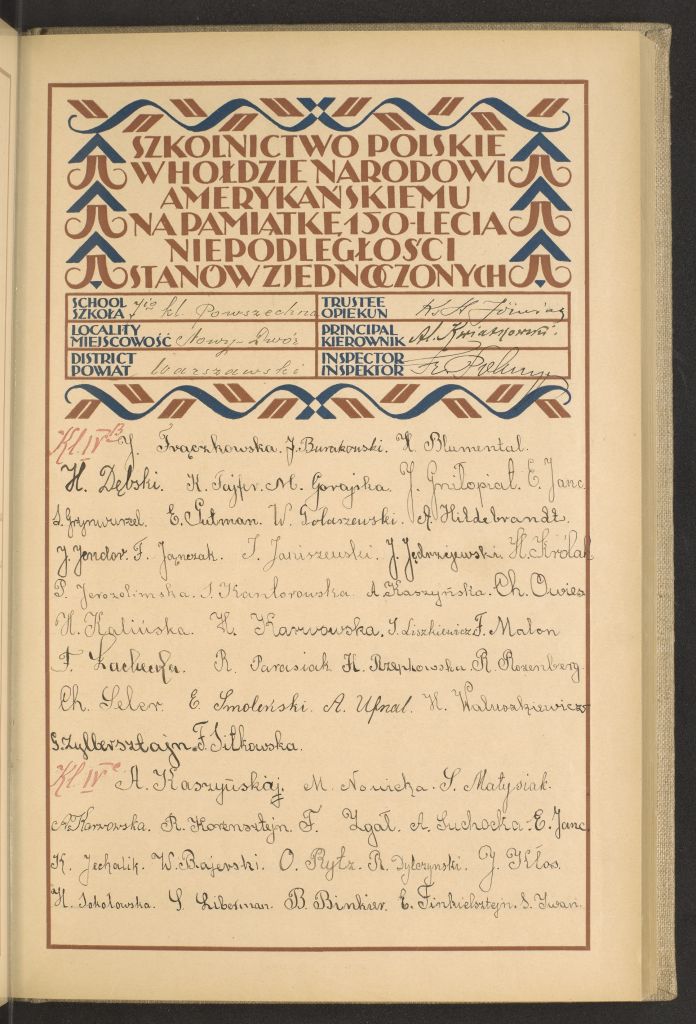 SZKOLNICTWO POLSKIE
W HOŁDZIE NARODOWI
AMERYKAŃSKIEMU
NA PAMIĄTKĘ 150-LECIA
NIEPODLEGŁOŚCI
STANÓW ZJEDNOCZONYCH
SCHOOL SZKOŁA 7io kl Powszechna
TRUSTEE OPIEKUN
LOCALITY MIEJSCOWOŚĆ Nowy-Dwór
PRINCIPAL KIEROWNIK Al. Kwiatkowski.
DISTRICT POWIAT Warszawski
INSPECTOR INSPEKTOR
Kl. IV B J. Frączkowska. J. Burakowski. H. Blumental.
H. Dębski. K. Fajfer. M. Gorajska. J. Gniłopiat. E. Janc
S. Grynwurzel. E. Gutman. W. Gołaszewski. A. Hildebrandt.
J. Jendor. F. Jączzak. I. Janiszewski. J. Jędrzejewski. H. Królak
P. Jerozolimska. S. Kantorowska. A. Kaszyńska. Ch. Owies
H. Kalińska. H. Karwowska. S. Liszkiewicz F. Malon
F. R. Parasiak. H. Rzepkowska. R. Rozenberg.
Ch. Seler. E. Smoleński. A. Ufnal. H. Waluszkiewicz
S. Zylbersztajn. F. Sitkowska.
Kl. IV c A. Kaszyńskaj. M. Nowicka. S. Matysiak.
A. Karwowska. R. Korensztejn. F. Zgał. A. Suchocka. E. Janc
K. Jechalik. W. Bajerski. O. Rytz. R. J. Kłos.
H. Sokołowska. S. Liberman. B. Binkier. E. Finkielsztejn. S. Iwan.